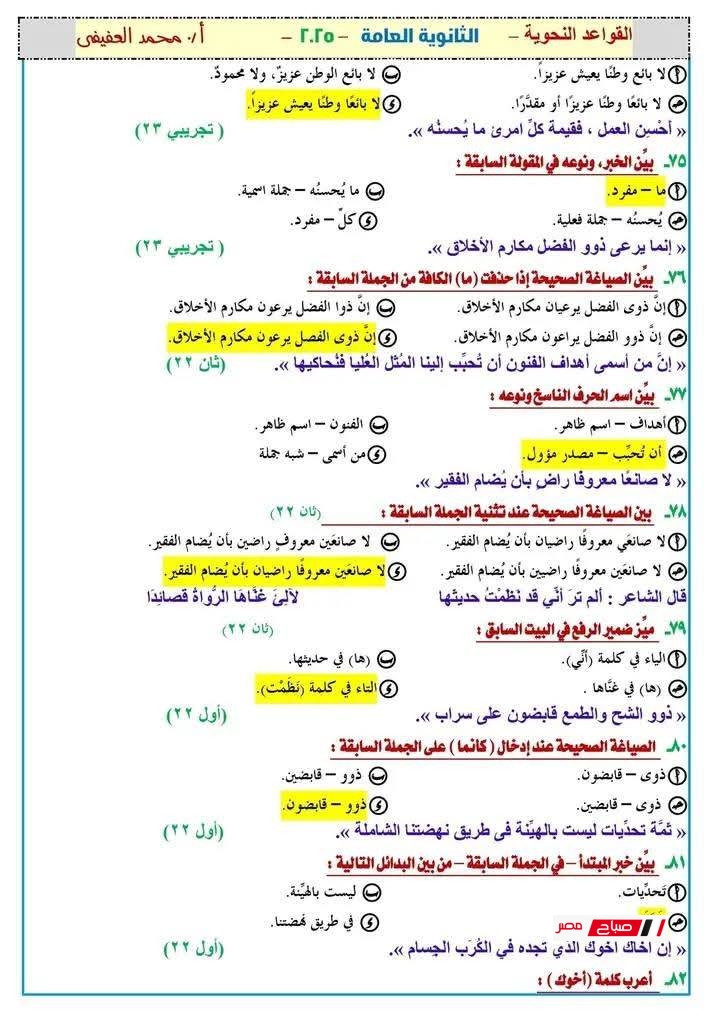 القواعد النحوية – الثانوية العامة – ٢٠٢٥ – أ/ محمد العفيفى
أ لا بائع وطنًا يعيش عزيزاً. ب لا بائع الوطن عزيزٌ، ولا محمودٌ.
جـ لا بائعًا وطنًا عزيزًا أو مقدَّرًا. د لا بائعًا وطنًا يعيش عزيزاً.
« أحْسِن العمل ، فقيمة كلِّ امرئ ما يُحسنُه ». ( تجريبي ٢٣)
٧٥ـ بيِّن الخبر، ونوعه في المقولة السابقة :
أ ما – مفرد. ب ما يُحسنُه – جملة اسمية.
جـ يُحسنُه – جملة فعلية. د كلّ – مفرد.
« إنما يرعى ذوو الفضل مكارم الأخلاق ». ( تجريبي ٢٣)
٧٦ـ بيِّن الصياغة الصحيحة إذا حذفت (ما) الكافة من الجملة السابقة :
أ إنَّ ذوى الفضل يرعيان مكارم الأخلاق. ب إنَّ ذوا الفضل يرعون مكارم الأخلاق.
جـ إنَّ ذوو الفضل يراعون مكارم الأخلاق. د إنَّ ذوى الفصل يرعون مكارم الأخلاق.
« إنَّ من أسمى أهداف الفنون أن تُحبِّب إلينا المُثل العُليا فنُحاكيها ». (ثان ٢٢)
٧٧ـ بيِّن اسم الحرف الناسخ ونوعه :
أ أهداف – اسم ظاهر. ب الفنون – اسم ظاهر.
جـ أن تُحبِّب – مصدر مؤول. د من أسمى – شبه جملة
« لا صانعًا معروفًا راضٍ بأن يُضام الفقير ».
٧٨ـ بين الصياغة الصحيحة عند تثنية الجملة السابقة : (ثان ٢٢)
أ لا صانعَي معروفًا راضيان بأن يُضام الفقير. ب لا صانعَين معروفٍ راضين بأن يُضام الفقير.
جـ لا صانعَين معروفًا راضيين بأن يُضام الفقير. د لا صانعَين معروفًا راضيان بأن يُضام الفقير.
قال الشاعر : ألم ترَ أنَّي قد نَظَمْتُ حديثَها لآلِئَ غَنَّاهَا الرُّواةُ قصائِدَا
٧٩ـ ميِّز ضمير الرفع في البيت السابق : (ثان ٢٢)
أ الياء في كلمة (أنَّي). ب (ها) في حديثها.
جـ (ها) في غنَّاها . د التاء في كلمة (نَظَمْت).
« ذوو الشح والطمع قابضون على سراب ». (أول ٢٢)
٨٠ـ الصياغة الصحيحة عند إدخال ( كأنما ) على الجملة السابقة :
أ ذوى – قابضون. ب ذوو – قابضين.
جـ ذوى – قابضين. د ذوو – قابضون.
« ثمَّة تحدِّيات ليست بالهيِّنة فى طريق نهضتنا الشاملة ». (أول ٢٢)
٨١ـ بيِّن خبر المبتدأ – في الجملة السابقة – من بين البدائل التالية :
أ تَحدِّيات. ب ليست بالهيِّنة.
جـ صباح مصر د في طريق نهضتنا.
« إن أخاك أخوك الذي تجده في الكُرَب الجِسام ». (أول ٢٢)
٨٢ـ أعرب كلمة (أخوك) :